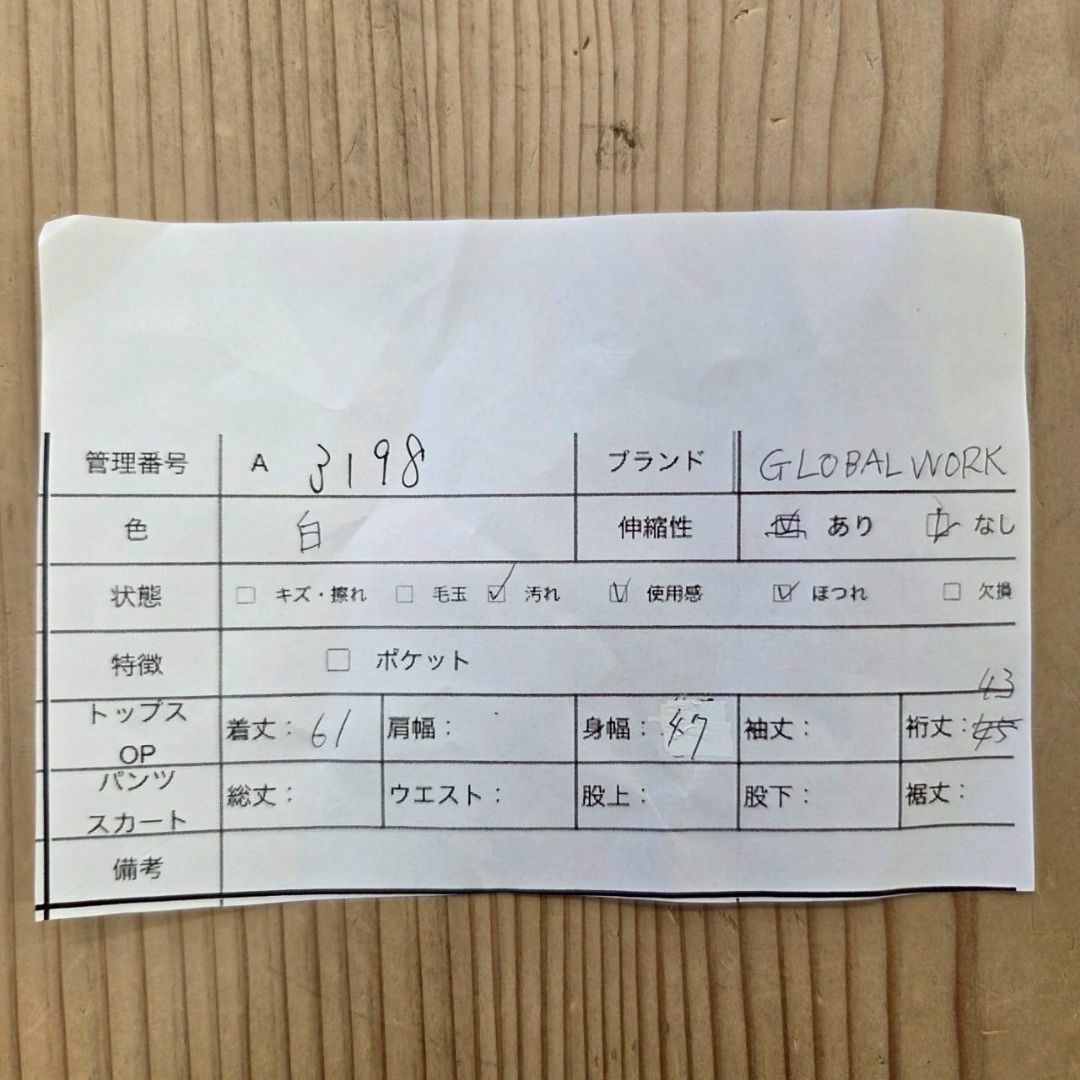 管理番号 A 3198 ブランド GLOBAL WORK
色 白 伸縮性 ☑ あり ☑ なし
状態 ☐ キズ・擦れ ☐ 毛玉 ☑ 汚れ ☑ 使用感 ☑ ほつれ ☐ 欠損
特徴 ☐ ポケット
43
トップス OP 着丈: 61 肩幅: 身幅: 47 袖丈: 裄丈: 45
パンツ スカート 総丈: ウエスト: 股上: 股下: 裾丈:
備考